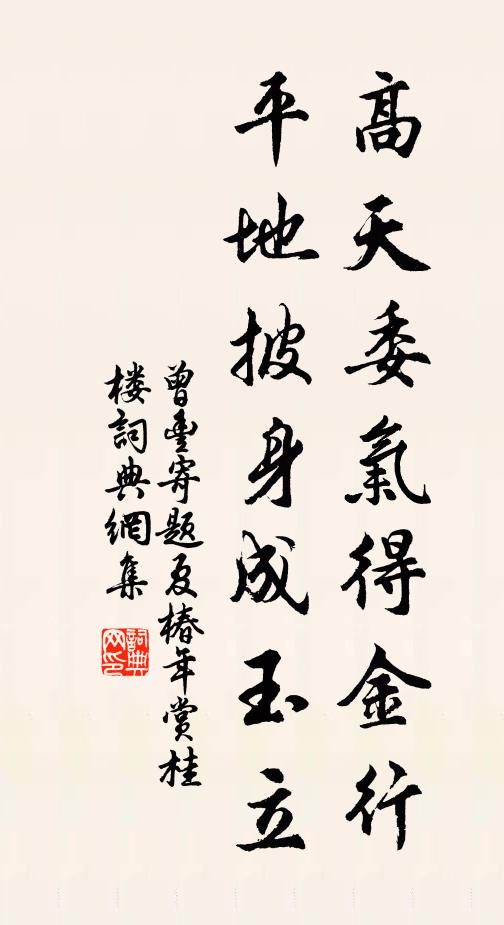 高天委氣得金行
平地披身成玉立
曾豊寄題夏椿年賞桂
楼詞典網集
詞典网印